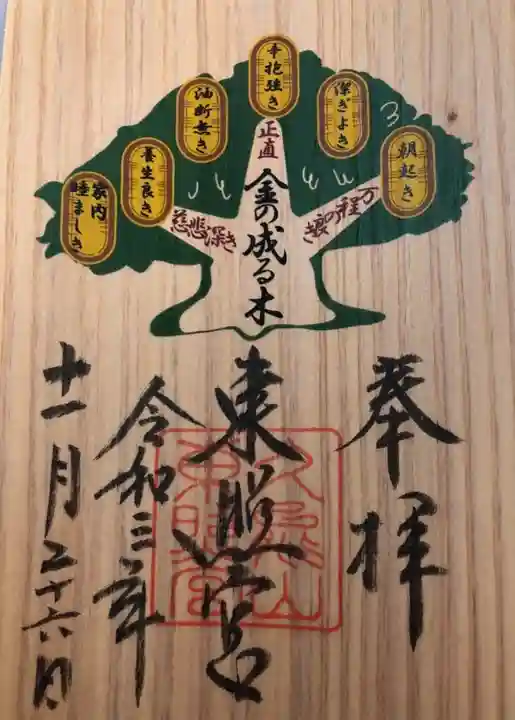 朝起き
潔ぎよき
辛抱強き
油断無き
養生良き
家内睦ましき
万程の良き
正直
慈悲深き
金の成る木
奉拝
東照宮
久能山東照宮
令和三年
十一月二十六日